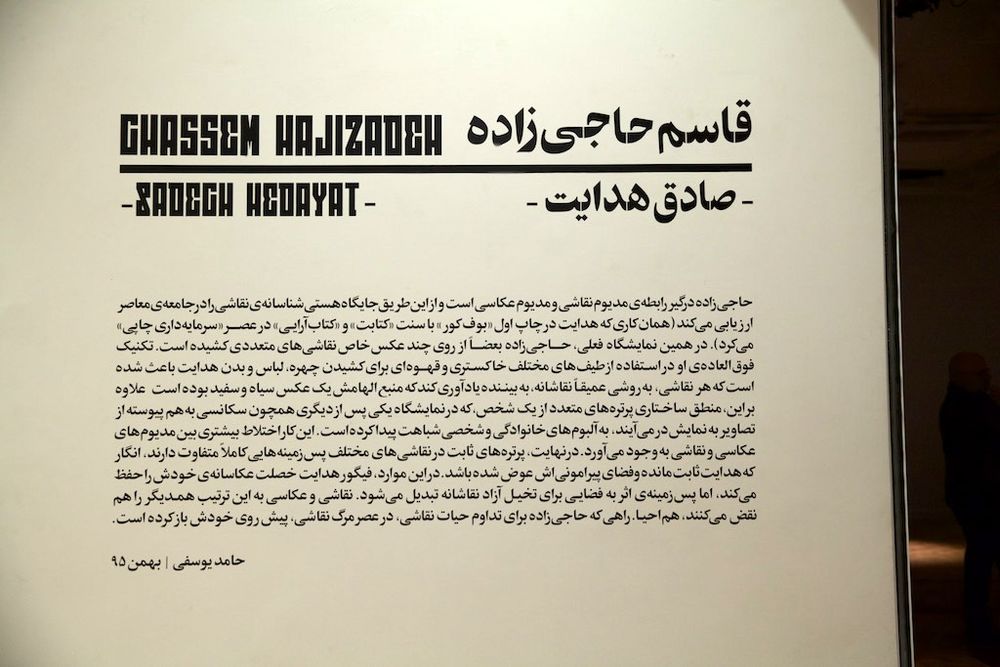 قاسم حاجی‌زاده GHASSEM HAJIZADEH
- صادق هدایت - -SADEGH HEDAYAT-
حاجی‌زاده درگیر رابطه‌ی مدیوم نقاشی و مدیوم عکاسی است و از این طریق جایگاه هستی‌شناسانه‌ی نقاشی را در جامعه‌ی معاصر
ارزیابی می‌کند (همان کاری که هدایت در چاپ اول «بوف کور» با سنت «کتابت» و «کتاب‌آرایی» در عصر «سرمایه‌داری چاپی»
می‌کرد). در همین نمایشگاه فعلی، حاجی‌زاده بعضاً از روی چند عکس خاص نقاشی‌های متعددی کشیده است. تکنیک
فوق العاده‌ی او در استفاده از طیف‌های مختلف خاکستری و قهوه‌ای برای کشیدن چهره، لباس و بدن هدایت باعث شده
است که هر نقاشی، به روشی عمیقاً نقاشانه، به بیننده یادآوری کند که منبع الهامش یک عکس سیاه و سفید بوده است علاوه
بر این، منطق ساختاری پرتره‌های متعدد از یک شخص، که در نمایشگاه یکی پس از دیگری همچون سکانسی به هم پیوسته از
تصاویر به نمایش در می‌آیند، به آلبوم‌های خانوادگی و شخصی شباهت پیدا کرده است. این کار اختلاط بیشتری بین مدیوم‌های
عکاسی و نقاشی به وجود می‌آورد. در نهایت، پرتره‌های ثابت در نقاشی‌های مختلف پس زمینه‌هایی کاملاً متفاوت دارند. انگار
که هدایت ثابت مانده و فضای پیرامونی‌اش عوض شده باشد. در این موارد، فیگور هدایت خصلت عکاسانه‌ی خودش را حفظ
می‌کند، اما پس زمینه‌ی اثر به فضایی برای تخیل آزاد نقاشانه تبدیل می‌شود. نقاشی و عکاسی به این ترتیب همدیگر را هم
نقض می‌کنند، هم احیا. راهی که حاجی‌زاده برای تداوم حیات نقاشی، در عصر مرگ نقاشی، پیش روی خودش باز کرده است.
حامد یوسفی | بهمن ۹۵